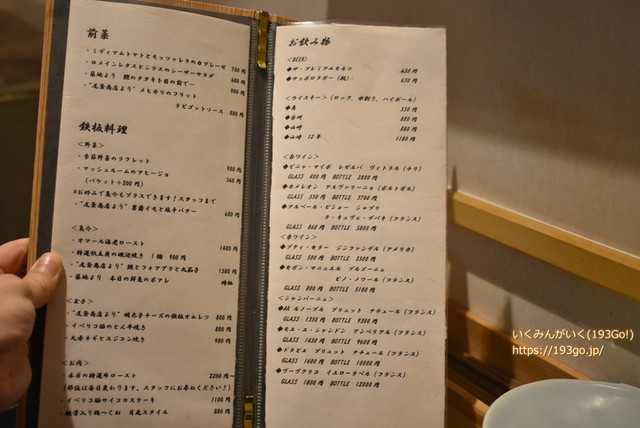 前菜
・ミディアムトマトとモッツァレラのカプレーゼ 780円
・ロメインレタスとシラスのシーザーサラダ 680円
・築地より 鰹のタタキ 980円
・"尾登商店より"メヒカリのフリット
ラビゴットソース 880円
鉄板料理
<野菜>
・季節野菜のラクレット 980円
・マッシュルームのアヒージョ 560円
(バケット+200円)
・"尾登商店より" 680円
<魚介>
・オマール海老ロースト 1480円
・特選帆立貝の磯辺焼き 1個 900円
・"尾登商店より"鰻とフォアグラと丸茄子 1580円
・築地より 本日の鮮魚のポアレ 時価
・イベリコ豚のとん平焼き 880円
・九条ネギとスジコン焼き 980円
<お肉>
・本日の特選牛ロースト 2200円~
(部位は毎日変わります。スタッフにお尋ねください!)
・イベリコ豚サイコロステーキ 1100円
・軟骨入り鶏つくね 月見スタイル 880円
お飲み物
<BEER>
◆ザ・プレミアムモルツ 650円
◆サッポロラガー(瓶) 630円
<ウイスキー>(ロック、水割り、ハイボール)
◆角 550円
◆白州 880円
◆山崎 880円
◆山崎 12年 1180円
<白ワイン>
◆ビニャ・マイポ レゼルバ ヴィトラル(チリ)
GLASS 400円 BOTTLE 2800円
◆カメレオン アルヴァリーニョ(ポルトガル)
GLASS 550円 BOTTLE 3780円
◆アルベール・ビショー シャブリ
ラ・キュヴェ・デパキ(フランス)
GLASS 860円 BOTTLE 5800円
<赤ワイン>
◆プティ・セラー ジンファンデル(アメリカ)
GLASS 500円 BOTTLE 3500円
◆セガン・マニュエル ブルゴーニュ
ピノ・ノワール(フランス)
GLASS 800円 BOTTLE 5100円
<シャンパーニュ>
◆AR ルノーブル ブリュット ナチュール(フランス)
GLASS 1350円 BOTTLE 9200円
◆モエ・エ・シャンドン アンペリアル(フランス)
GLASS 1450円 BOTTLE 9600円
◆ドラピエ ブリュット ナチュール(フランス)
GLASS 1600円 BOTTLE 10000円
◆ヴーヴクリコ イエローラベル(フランス)
GLASS 1800円 BOTTLE 12000円
いくみんがいく(193Go!)
https://193go.jp/